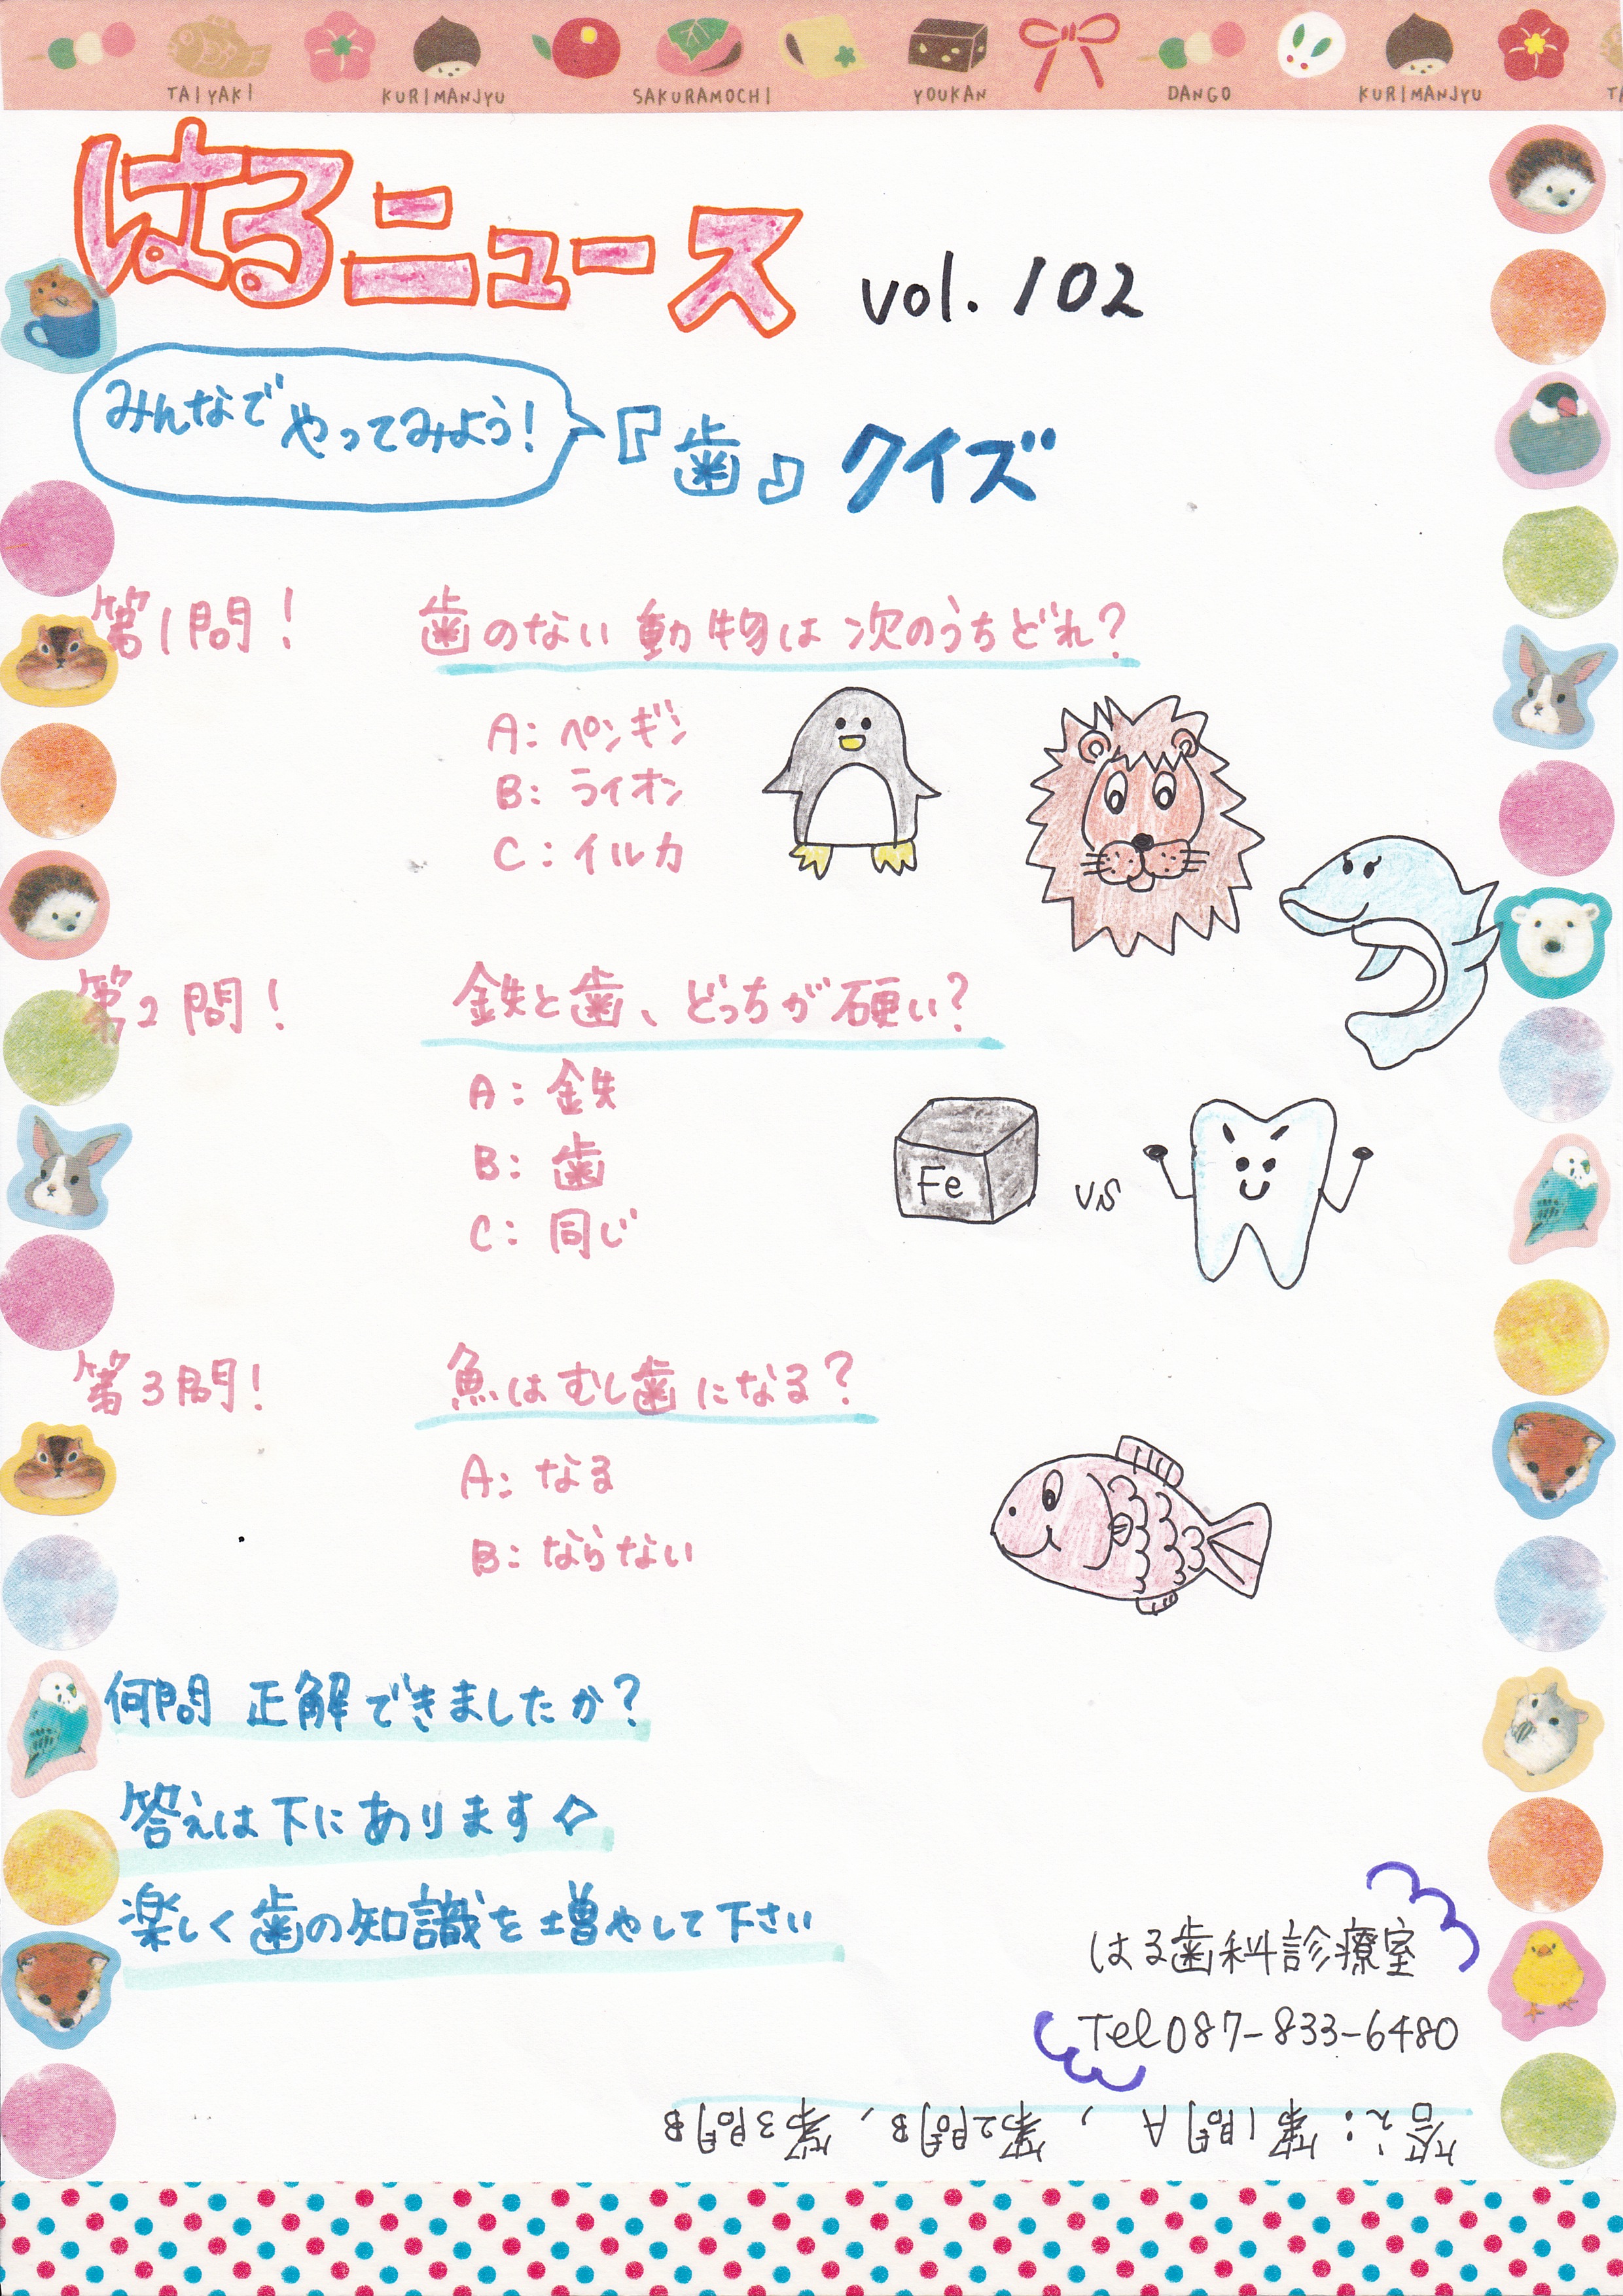 TAIYAKI KURIMANJYU SAKURAMOCHI YOUKAN DANGO KURIMANJYU TA
はるニュース vol. 102
みんなでやってみよう!
『歯』クイズ
第1問! 歯のない動物は次のうちどれ?
A: ペンギン
B: ライオン
C: イルカ
第2問! 鉄と歯、どっちが硬い?
A: 鉄
B: 歯
C: 同じ
Fe vs
第3問! 魚はむし歯になる?
A: なる
B: ならない
何問 正解できましたか?
答えは下にあります
楽しく歯の知識を増やして下さい
はる歯科診療室
Tel 087-833-6480
答え: 第1問A , 第2問B, 第3問B